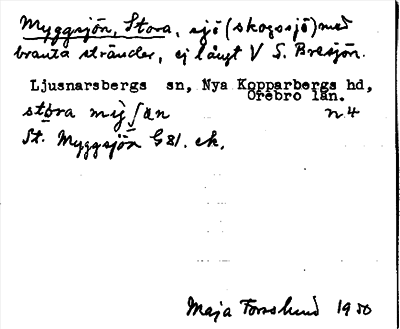 Myggsjön, Stora, sjö (skogssjö) med
branta stränder, ej långt V S. Bresjön.
Ljusnarsbergs sn, Nya Kopparbergs hd,
Örebro län.
stora
n.4
St. Myggsjön G 81. ek.
Maja Forslund 1950